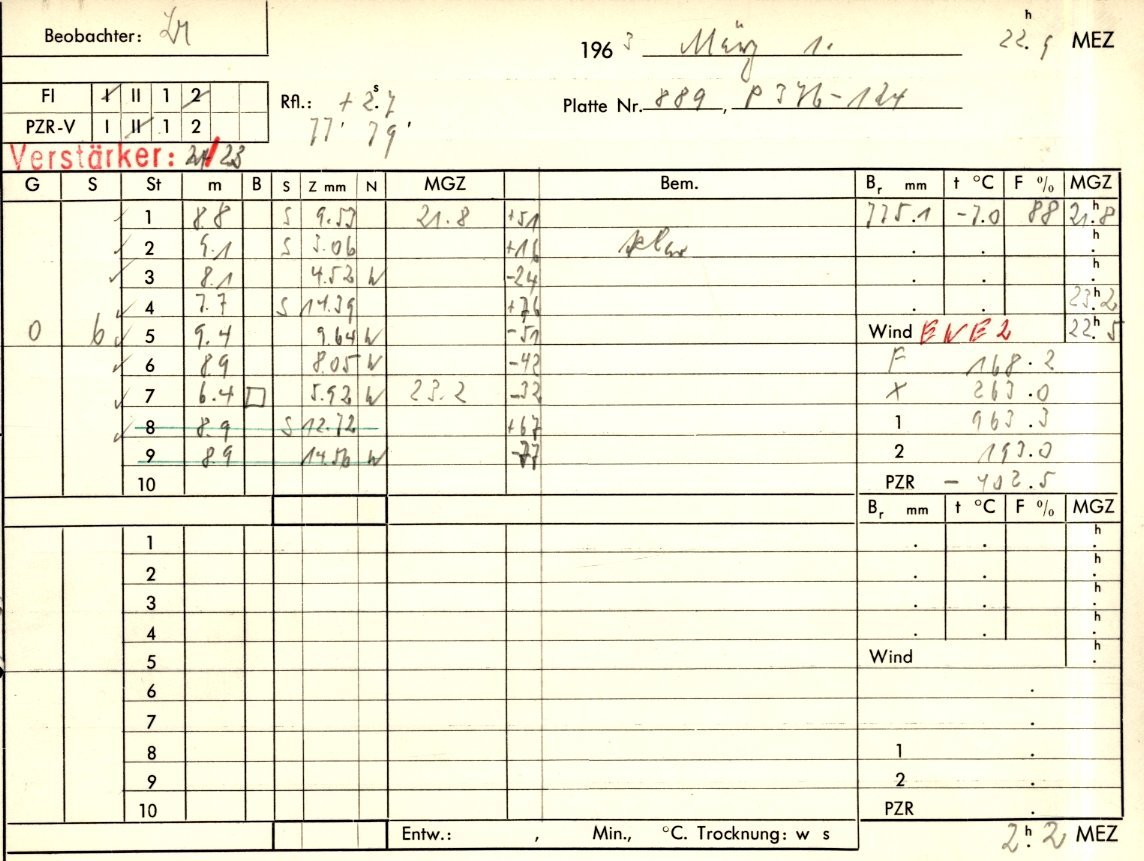 Beobachter:
1963 März 1. 22.h9 MEZ
FI I II 1 2
PZR-V I II 1 2
Rfl.: +2.s7
77' 79'
Platte Nr. 889, P 376-124
Verstärker: 24/23
G S St m B S Z mm N MGZ Bem. Br mm t °C F % MGZ
1 8.8 S 9.53 21.8 +51 775.1 -7.0 88 21.h8
2 9.1 S 3.06 +16 . . h.
3 8.1 4.52 W -24 . . h.
4 7.7 S 14.39 +76 . . 23.h2
0 6 5 9.4 9.64 W -51 Wind ENE 2 22.h5
6 8.9 8.05 W -42 F 168.2
7 6.4 □ 5.92 W 23.2 -32 X 263.0
8 8.9 S 12.72 +67 1 963.3
9 8.9 14.56 W -77 2 193.0
10 PZR - 402.5
Br mm t °C F % MGZ
1 . . h.
2 . . h.
3 . . h.
4 . . h.
5 Wind h.
6 .
7 .
8 1 .
9 2 .
10 PZR .
Entw.: , Min., °C. Trocknung: w s 2.h2 MEZ